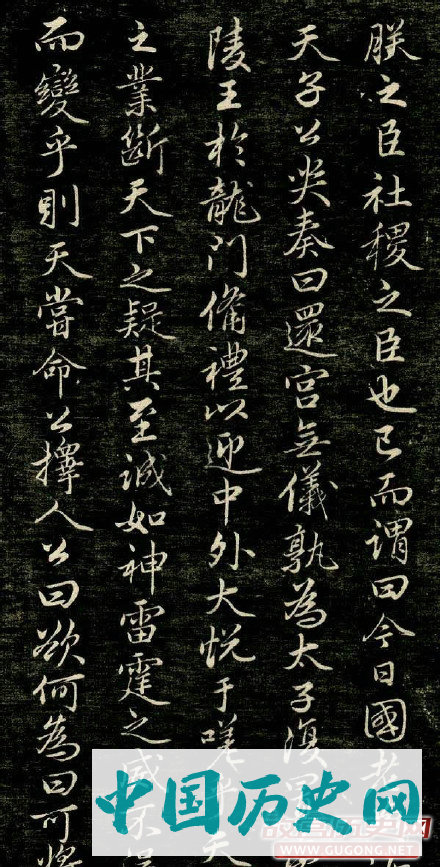 朕之臣社稷之臣也已而謂曰今日國老
天子公哭奏曰還宮無儀孰為太子復
陵王於龍門備禮以迎中外大悅于嗟
之業斷天下之疑其至誠如神雷霆之威不
而變乎則天嘗命公擇人公曰欲何為曰可將
中国历史网
WWW.GUGONG.NET